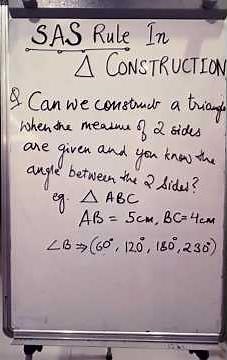 SAS Rule In
△ CONSTRUCTION
Q Can we construct a triangle
when the measure of 2 sides
are given and you know the
angle between the 2 Sides?
eg. △ ABC
AB = 5cm, BC=4cm
∠B ⇒ (60°, 120°, 180°, 230°)